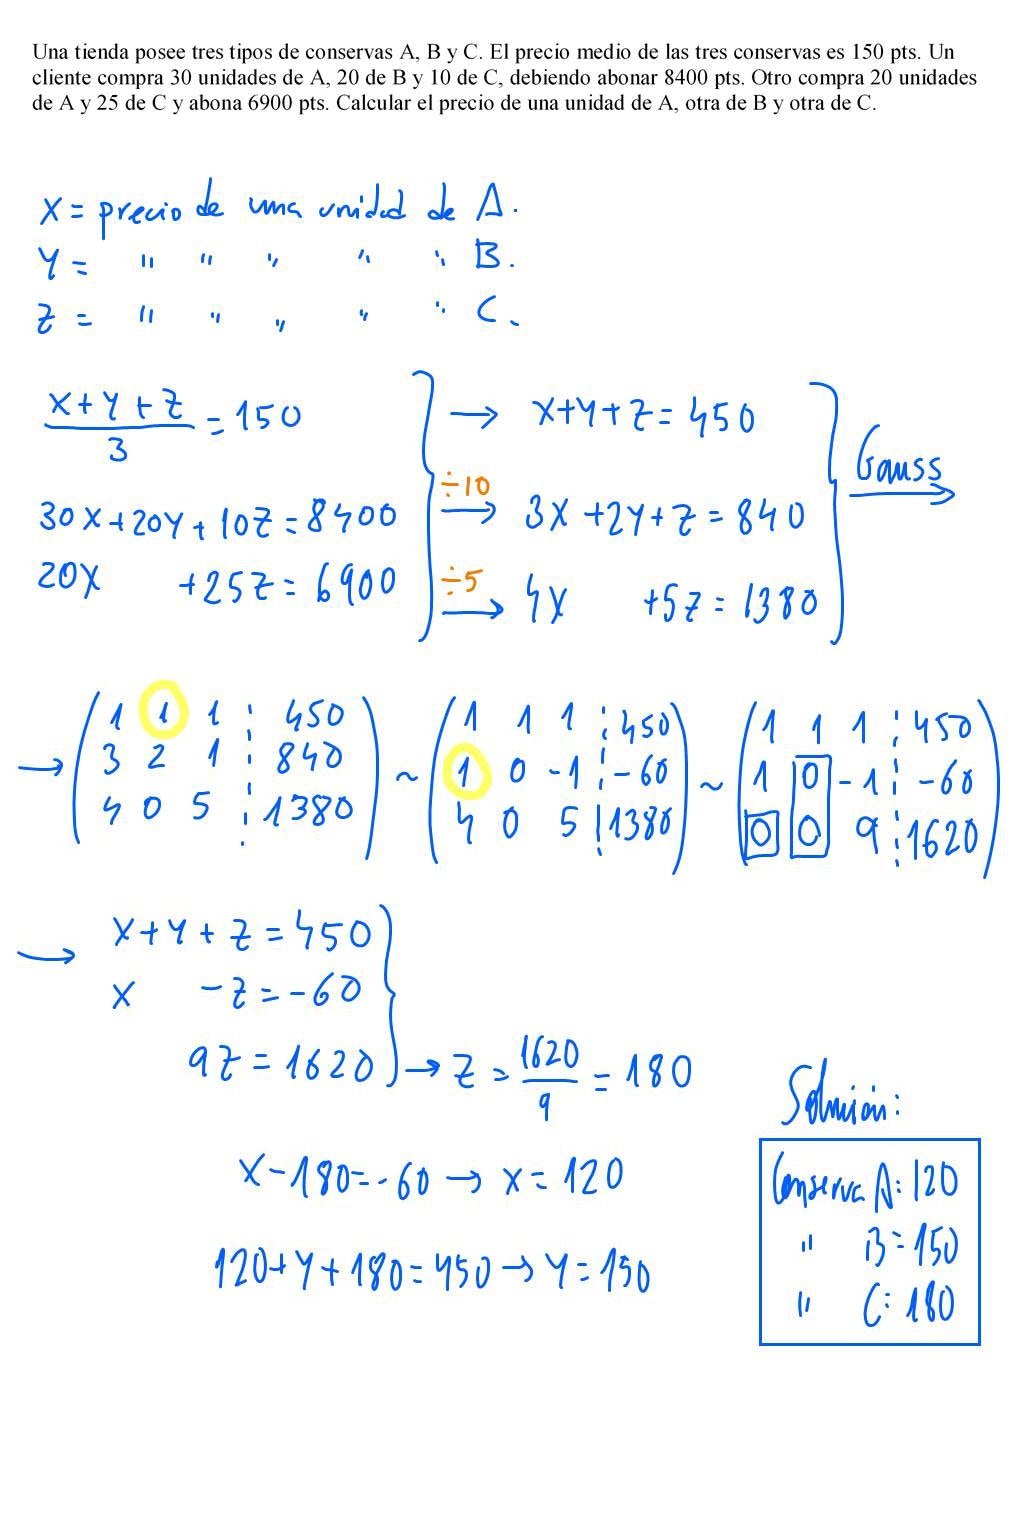 Una tienda posee tres tipos de conservas A, B y C. El precio medio de las tres conservas es 150 pts. Un
cliente compra 30 unidades de A, 20 de B y 10 de C, debiendo abonar 8400 pts. Otro compra 20 unidades
de A y 25 de C y abona 6900 pts. Calcular el precio de una unidad de A, otra de B y otra de C.
X = precio de una unidad de A.
Y = " " " " " B.
Z = " " " " " C.
(X+Y+Z)/3 = 150 → X+Y+Z = 450
30X+20Y+10Z = 8400 ÷10 → 3X+2Y+Z = 840 Gauss →
20X +25Z = 6900 ÷5 → 4X +5Z = 1380
→ (1 1 1 ¦ 450) ~ (1 1 1 ¦ 450) ~ (1 1 1 ¦ 450)
(3 2 1 ¦ 840) (1 0 -1 ¦ -60) (1 0 -1 ¦ -60)
(4 0 5 ¦ 1380) (4 0 5 ¦ 1380) (0 0 9 ¦ 1620)
→ X+Y+Z = 450
X -Z = -60
9Z = 1620 → Z = 1620/9 = 180
X-180=-60 → X = 120
120+Y+180=450 → Y = 150
Solución:
Conserva A: 120
" B = 150
" C: 180